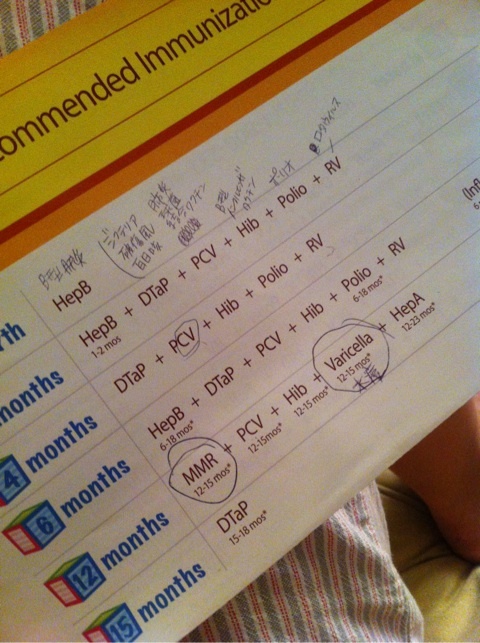 commended Immunizatio
B型肝炎
ジフテリア
破傷風
百日咳
B型
ワクチン
ポリオ
ロタウイルス
rth
HepB
months
HepB + DTaP + PCV + Hib + Polio + RV
1-2 mos
4 months
DTaP + PCV + Hib + Polio + RV
6 months
HepB + DTaP + PCV + Hib + Polio + RV
6-18 mos* 6-18 mos*
12 months
MMR + PCV + Hib + Varicella + HepA
12-15 mos* 12-15mos* 12-15 mos* 12-15 mos* 12-23 mos*
水痘
15 months
DTaP
15-18 mos*